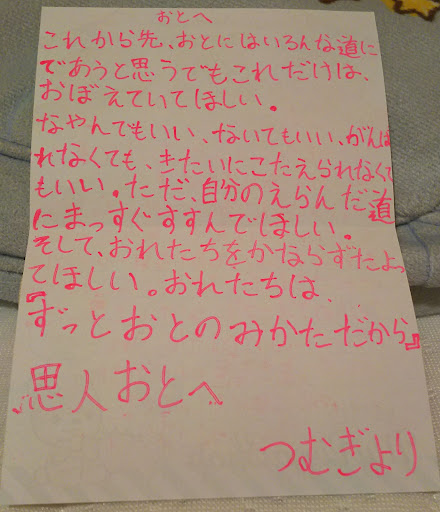 おとへ
これから先、おとにはいろんな道に
であうと思うでもこれだけは、
おぼえていてほしい。
なやんでもいい、ないてもいい、がんば
れなくても、きたいにこたえられなくて
もいい。ただ、自分のえらんだ道
にまっすぐすすんでほしい。
そして、おれたちをかならずたよっ
てほしい。おれたちは、
『ずっとおとのみかただから』
思人おとへ
つむぎより